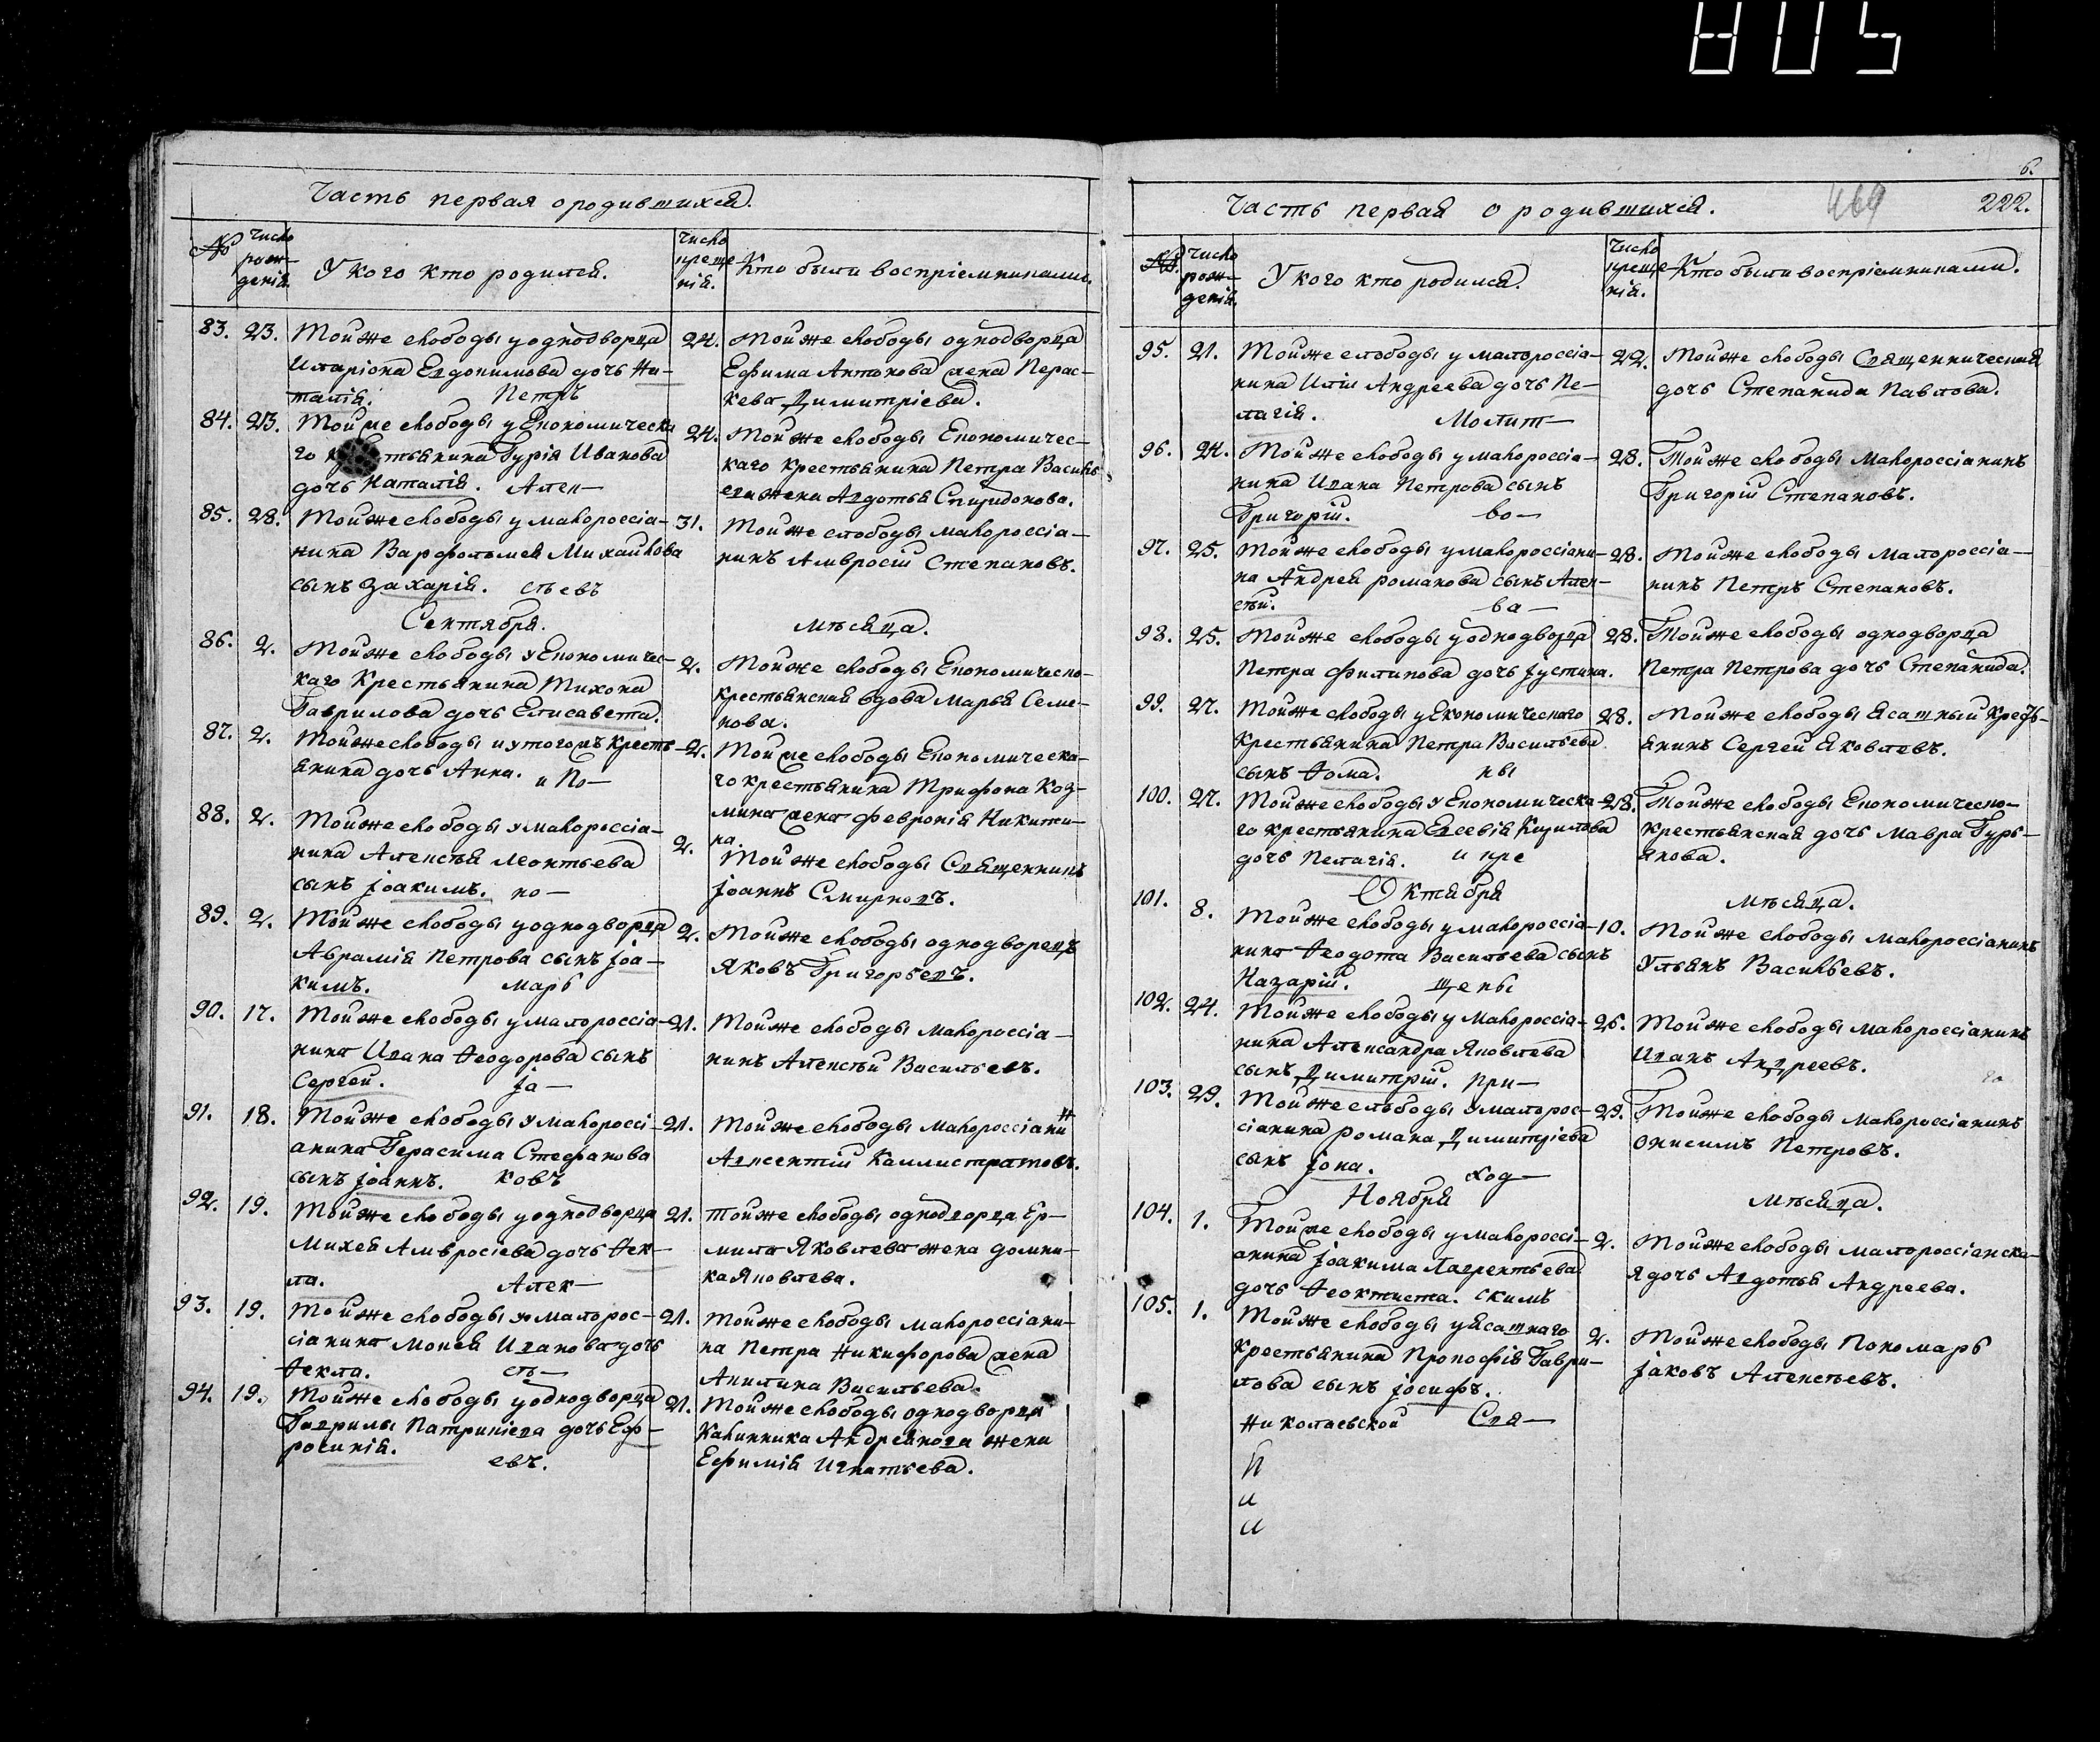 805
Часть первая о родившихся.
№
Число рождения.
У кого кто родился.
Число крещения.
Кто были воспріемниками.
83. 23. Той же слободы у однодворца
Иларіона Евдокимова дочь На-
талія. Петръ
24. Той же слободы однодворца
Ефима Антонова жена Парас-
кева Димитріева.
84. 23. Той же слободы у Економическа
го крестьянина Гурія Иванова
дочь Наталія. Алек-
24. Той же слободы Економичес-
каго крестьянина Петра Василь
ева жена Авдотья Спиридонова.
85. 28. Той же слободы у малороссія-
нина Варфоломея Михайлова
сынъ Захарія. сѣевъ
31. Той же слободы малороссія-
нинъ Амвросій Степановъ.
Сентября. Мѣсяца.
86. 2. Той же слободы у Економичес-
каго Крестьянина Тихона
Гаврилова дочь Елисавета.
2. Той же слободы Економическо-
крестьянская вдова Марья Семе-
нова.
87. 2. Той же слободы и у тогожъ кресть-
янина дочь Анна. и По-
2. Той же слободы Економическа-
го крестьянина Трифона Коз-
мина жена Февронія Никити-
на.
88. 2. Той же слободы у малороссія-
нина Алексѣя Леонтьева
сынъ Іоакимъ. но-
2. Той же слободы Священникъ
Іоаннъ Смирновъ.
89. 2. Той же слободы у однодворца
Аврамія Петрова сынъ Іоа-
кимъ. марь
2. Той же слободы однодворецъ
Яковъ Григорьевъ.
90. 17. Той же слободы у малороссія-
нина Ивана Ѳеодорова сынъ
Сергей. Іа-
21. Той же слободы малороссія-
нинъ Алексѣй Васильевъ.
91. 18. Той же слободы у малороссі-
анина Герасима Стефанова
сынъ Іоаннъ. ковъ
21. Той же слободы малороссіанинъ
Авксентій Каллистратовъ.
92. 19. Той же слободы у однодворца
Михея Амвросіева дочь Ѳек-
ла. Алек-
21. Той же слободы однодворца Ер-
мила Яковлева жена Домни-
ка Яковлева.
93. 19. Той же слободы у малорос-
сіанина Мокея Иванова дочь
Ѳекла. сѣ-
21. Той же слободы малороссіани-
на Петра Никифорова жена
Акилина Васильева.
94. 19. Той же слободы у однодворца
Гаврилы Патрикіева дочь Еф-
росинія. евъ.
21. Той же слободы однодворца
Калинника Андреянова жена
Ефимія Игнатьева.
6.
Часть первая о родившихся. 469 222.
№
Число рождения.
У кого кто родился.
Число крещения.
Кто были воспріемниками.
95. 21. Той же слободы у малороссія-
нина Иліи Андреева дочь Пе-
лагія. Молит-
22. Той же слободы Священническая
дочь Степанида Павлова.
96. 24. Той же слободы у малороссія-
нина Ивана Петрова сынъ
Григорій. во-
28. Той же слободы малороссіанинъ
Григорій Степановъ.
97. 25. Той же слободы у малороссіани-
на Андрея Романова сынъ Алек-
сѣй. ва-
28. Той же слободы малороссія-
нинъ Петръ Степановъ.
98. 25. Той же слободы у однодворца
Петра Филипова дочь Іустина.
28. Той же слободы однодворца
Петра Петрова дочь Степанида.
99. 27. Той же слободы у Економическаго
Крестьянина Петра Васильева
сынъ Ѳома. ны
28. Той же слободы Ясашный Кресть-
янинъ Сергей Яковлевъ.
100. 27. Той же слободы у Економическа-
го крестьянина Евсевія Кирилова
дочь Пелагія. и пре
28. Той же слободы Економическо-
крестьянская дочь Мавра Гурь-
янова.
Октября Мѣсяца.
101. 8. Той же слободы у малороссіа-
нина Ѳеодота Васильева сынъ
Назарій. щены
10. Той же слободы малороссіанинъ
Ульянъ Васильевъ.
102. 24. Той же слободы у малороссіа-
нина Александра Яковлева
сынъ Димитрій. при-
25. Той же слободы малороссіанинъ
Иванъ Андреевъ.
103. 29. Той же слободы у малорос-
сіанина Романа Димитріева
сынъ Іона. ход-
29. Той же слободы малороссіанинъ
Онисимъ Петровъ.
Ноября Мѣсяца.
104. 1. Той же слободы у малороссі-
анина Іоакима Лаврентьева
дочь Ѳеоктиста. скимъ
2. Той же слободы малороссіанска-
я дочь Авдотья Андреева.
105. 1. Той же слободы у Ясашнаго
крестьянина Прокофія Гаври-
лова сынъ Іосифъ.
2. Той же слободы Пономарь
Іаковъ Алексѣевъ.
Николаевской Свя-